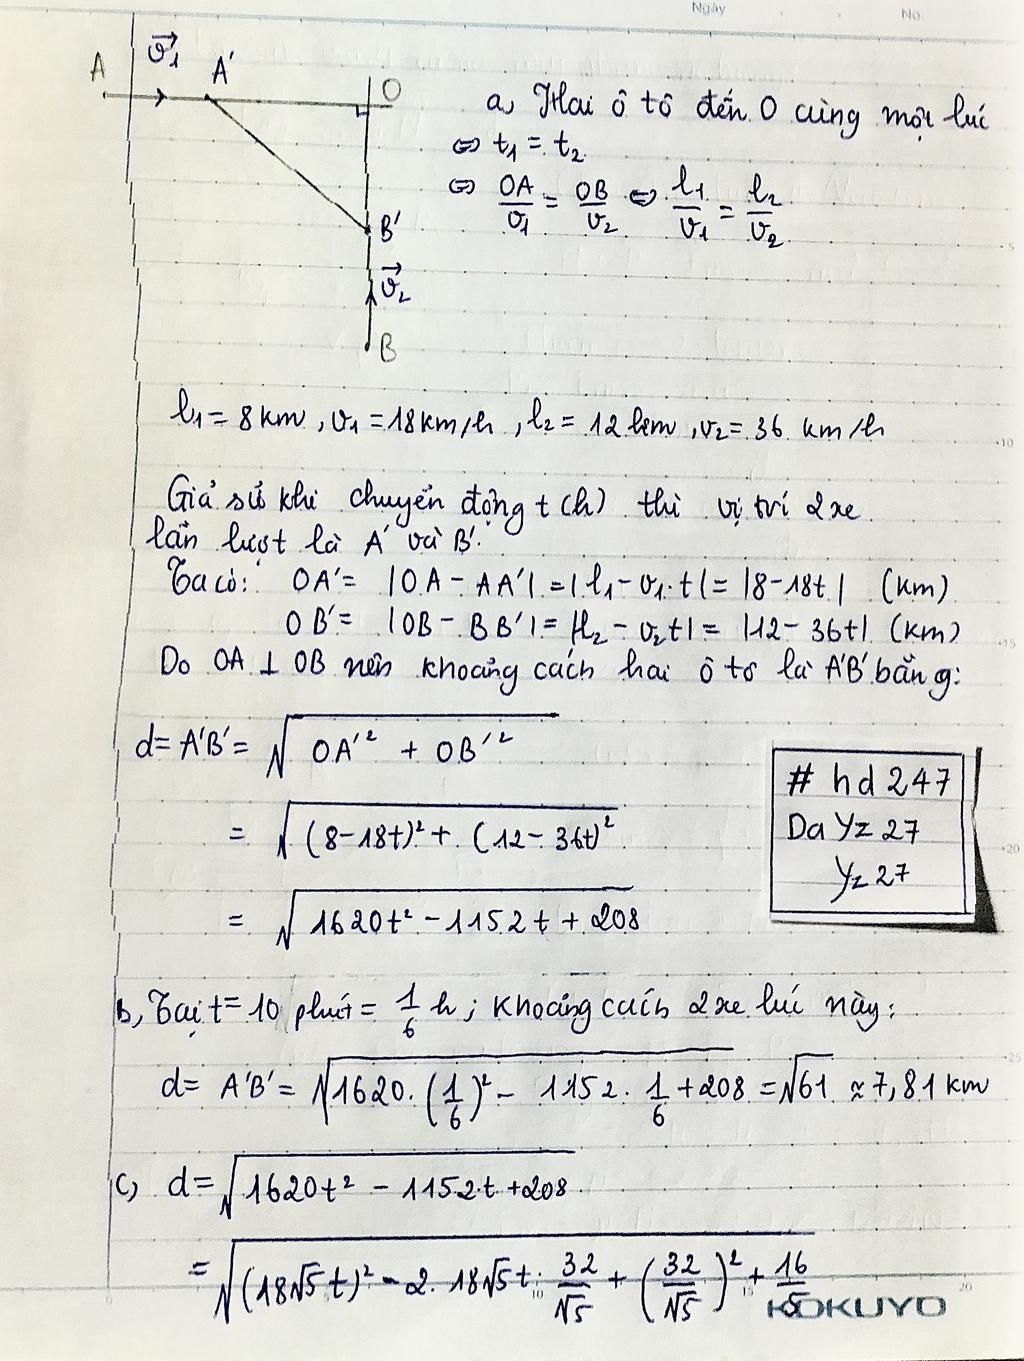 Ngày No.
A v₁ A' O
B'
v₂
B
a, Hai ô tô đến O cùng một lúc
⇔ t₁ = t₂
⇔ OA/v₁ = OB/v₂ ⇔ l₁/v₁ = l₂/v₂
l₁ = 8 km, v₁ = 18 km/h, l₂ = 12 km, v₂ = 36 km/h
Giả sử khi chuyển động t (h) thì vị trí 2 xe
lần lượt là A' và B'.
Ta có: OA' = |OA - AA'| = |l₁ - v₁.t| = |8-18t| (km)
OB' = |OB - BB'| = |l₂ - v₂t| = |12 - 36t| (km)
Do OA ⊥ OB nên khoảng cách hai ô tô là A'B' bằng:
d = A'B' = √(OA'² + OB'²)
= √((8-18t)² + (12-36t)²)
= √(1620t² - 1152t + 208)
# hd 247
Da Yz 27
Yz 27
b, Tại t = 10 phút = 1/6 h; khoảng cách 2 xe lúc này:
d = A'B' = √(1620.(1/6)² - 1152.1/6 + 208) = √61 ≈ 7,81 km
c, d = √(1620t² - 1152t + 208)
= √((18√5t)² - 2.18√5t.32/√5 + (32/√5)² + 16/5)
KOKUYO